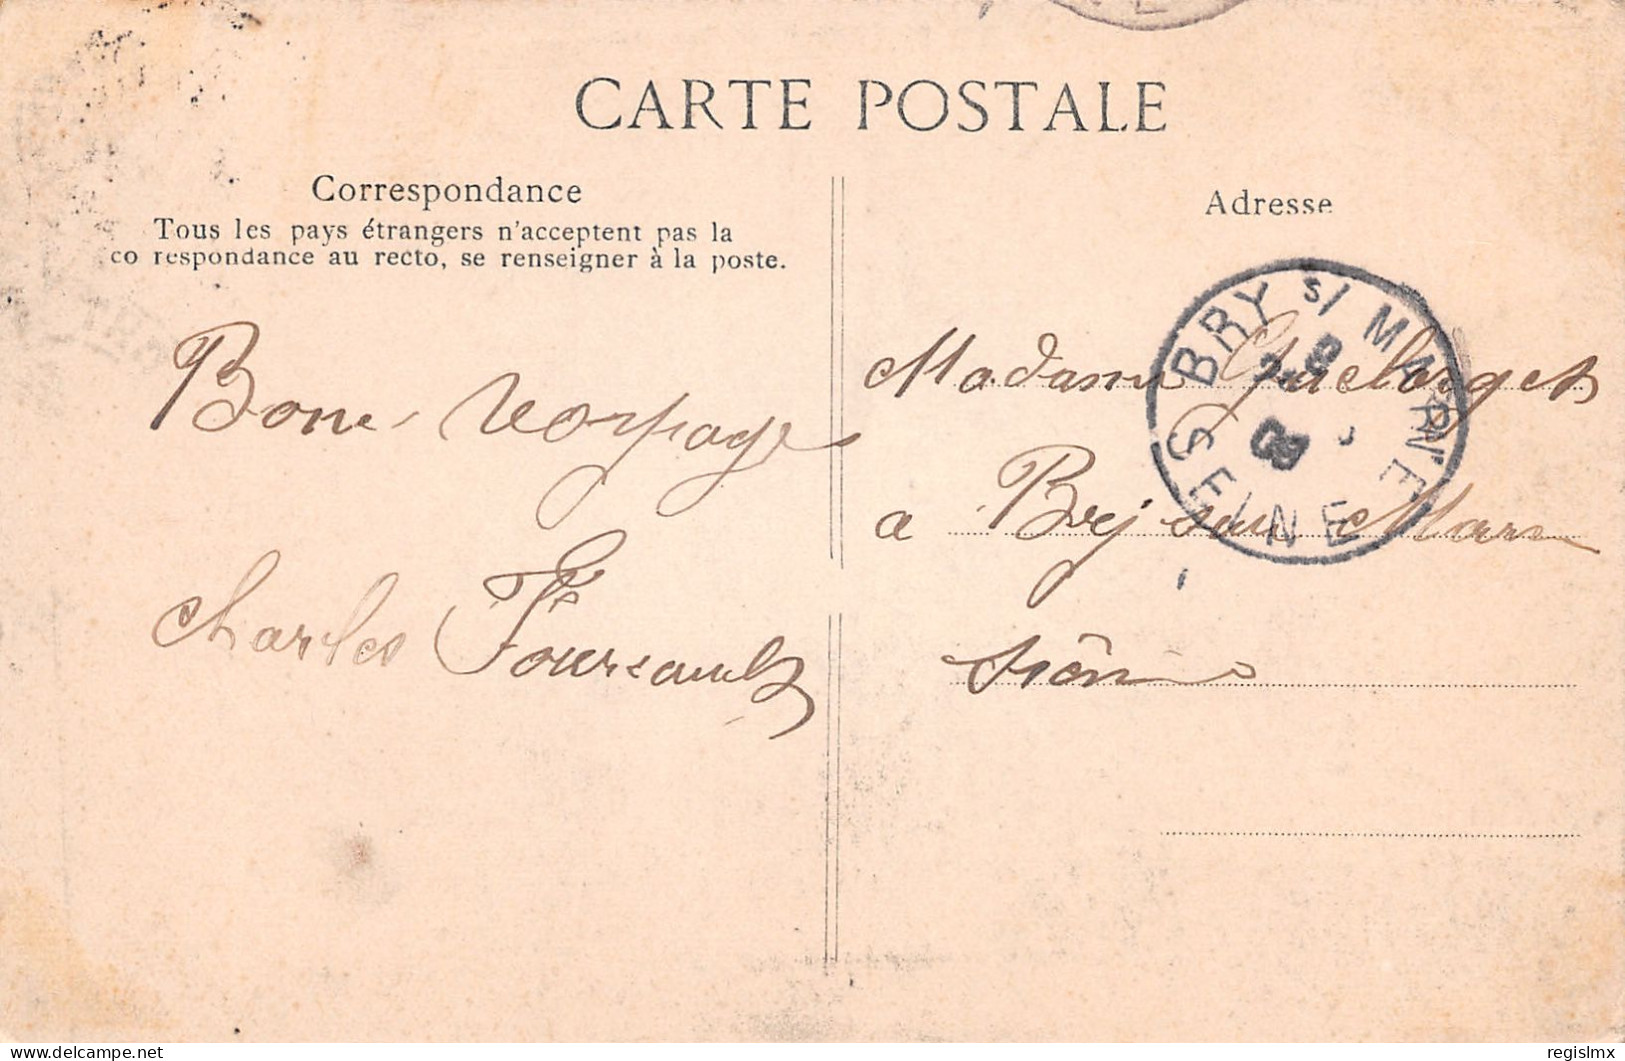 CARTE POSTALE
Correspondance
Tous les pays étrangers n'acceptent pas la
co respondance au recto, se renseigner à la poste.
Bone voyage
Charles
Adresse
Madame
a Bry sur Marne
BRY S/ MARNE
09
SEINE
delcampe.net
regislmx